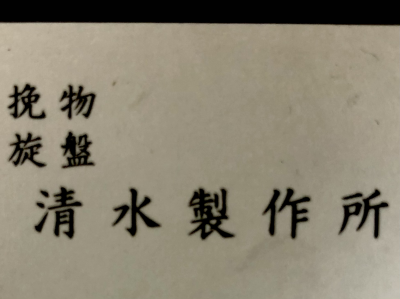 挽物
旋盤
清水製作所